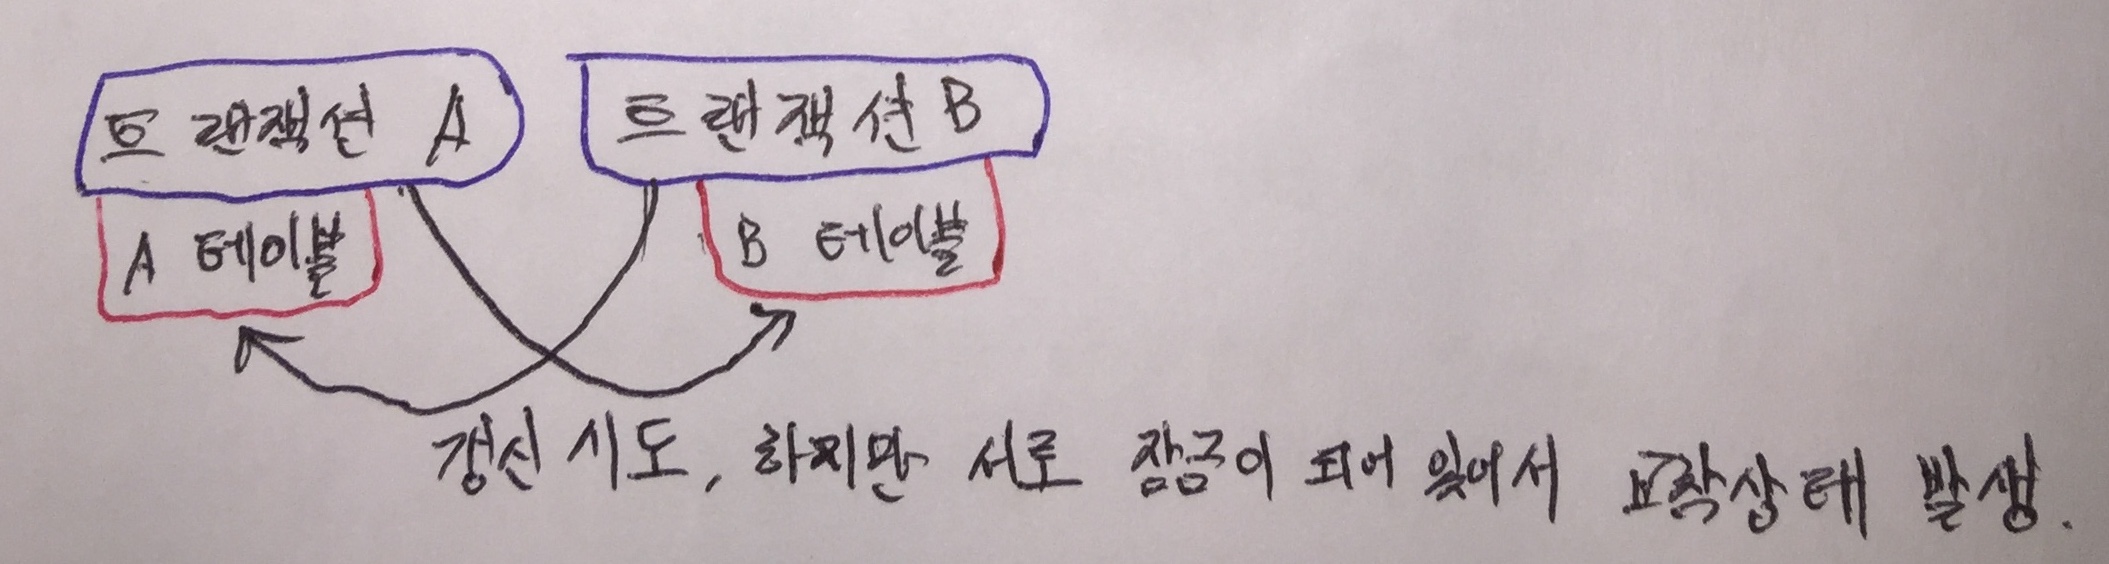 트랜잭션 A
트랜잭션 B
A 테이블
B 테이블
갱신 시도, 하지만 서로 잠금이 되어 있어서 교착상태 발생.